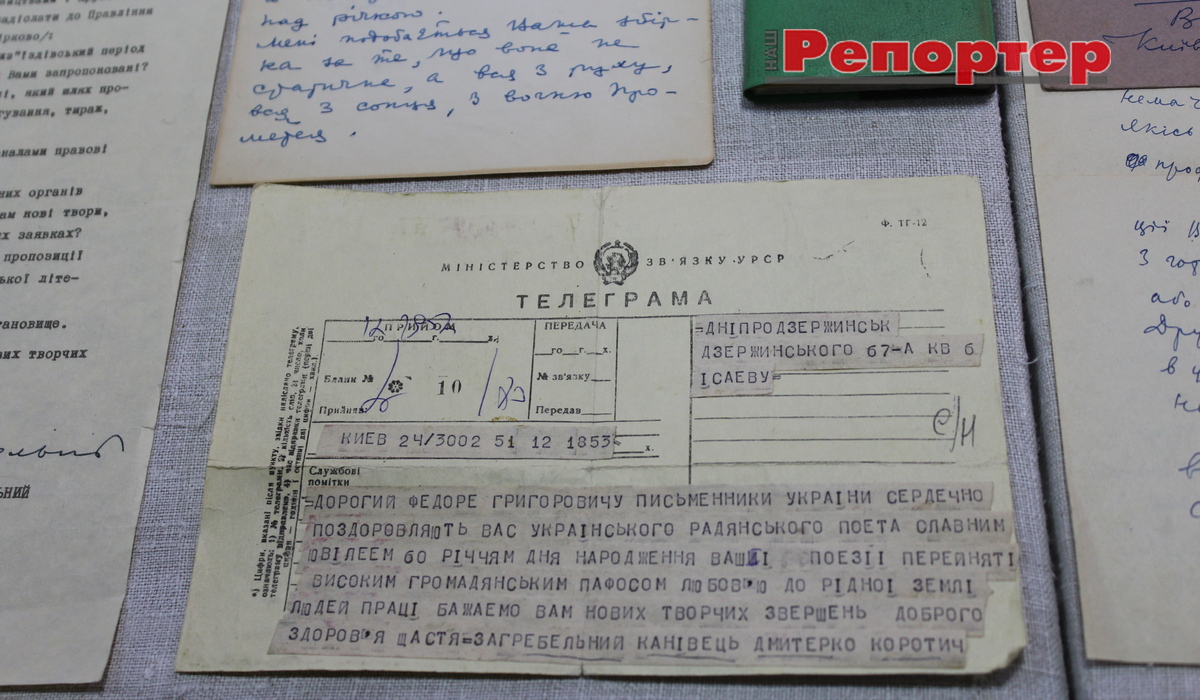 ництвами
надіслати до Правління
ірково/:
"їздівський період
Вами запропоновані?
і, який шлях про-
тування, тираж,
налами правові
них органів
ам нові твори,
х заявках?
пропозиції
ької літе-
тановище.
вих творчих
ьний
над річкою.
Мені подобається Ваша збір-
ка за те, що вона не
статична, а вся з руху,
вся з сонця, з вогню Про-
метея.
НАШ
Репортер
В
Київ
нема
якісь
ції В
З гор
або
Дру
в
Ф. ТГ-12
МІНІСТЕРСТВО ЗВ'ЯЗКУ УРСР
ТЕЛЕГРАМА
ПРИЙОМ
го г. х.
Бланк №
10
Прийняв
ПЕРЕДАЧА
го г. х.
№ зв'язку
Передав
=ДНІПРОДЗЕРЖИНСЬК
ДЗЕРЖИНСЬКОГО 67-А КВ 6
ІСАЕВУ=
С/Н
КИЕВ 24/3002 51 12 1853=
х.
Службові
помітки
=ДОРОГИЙ ФЕДОРЕ ГРИГОРОВИЧУ ПИСЬМЕННИКИ УКРАІНИ СЕРДЕЧНО
ПОЗДОРОВЛЯЮТЬ ВАС УКРАІНСЬКОГО РАДЯНСЬКОГО ПОЕТА СЛАВНИМ
ЮВІЛЕЕМ 60 РІЧЧЯМ ДНЯ НАРОДЖЕННЯ ВАШІ ПОЕЗІІ ПЕРЕЙНЯТІ
ВИСОКИМ ГРОМАДЯНСЬКИМ ПАФОСОМ ЛЮБОВ"Ю ДО РІДНОІ ЗЕМЛІ
ЛЮДЕЙ ПРАЦІ БАЖАЕМО ВАМ НОВИХ ТВОРЧИХ ЗВЕРШЕНЬ ДОБРОГО
ЗДОРОВ"Я ЩАСТЯ=ЗАГРЕБЕЛЬНИЙ КАНІВЕЦЬ ДМИТЕРКО КОРОТИЧ